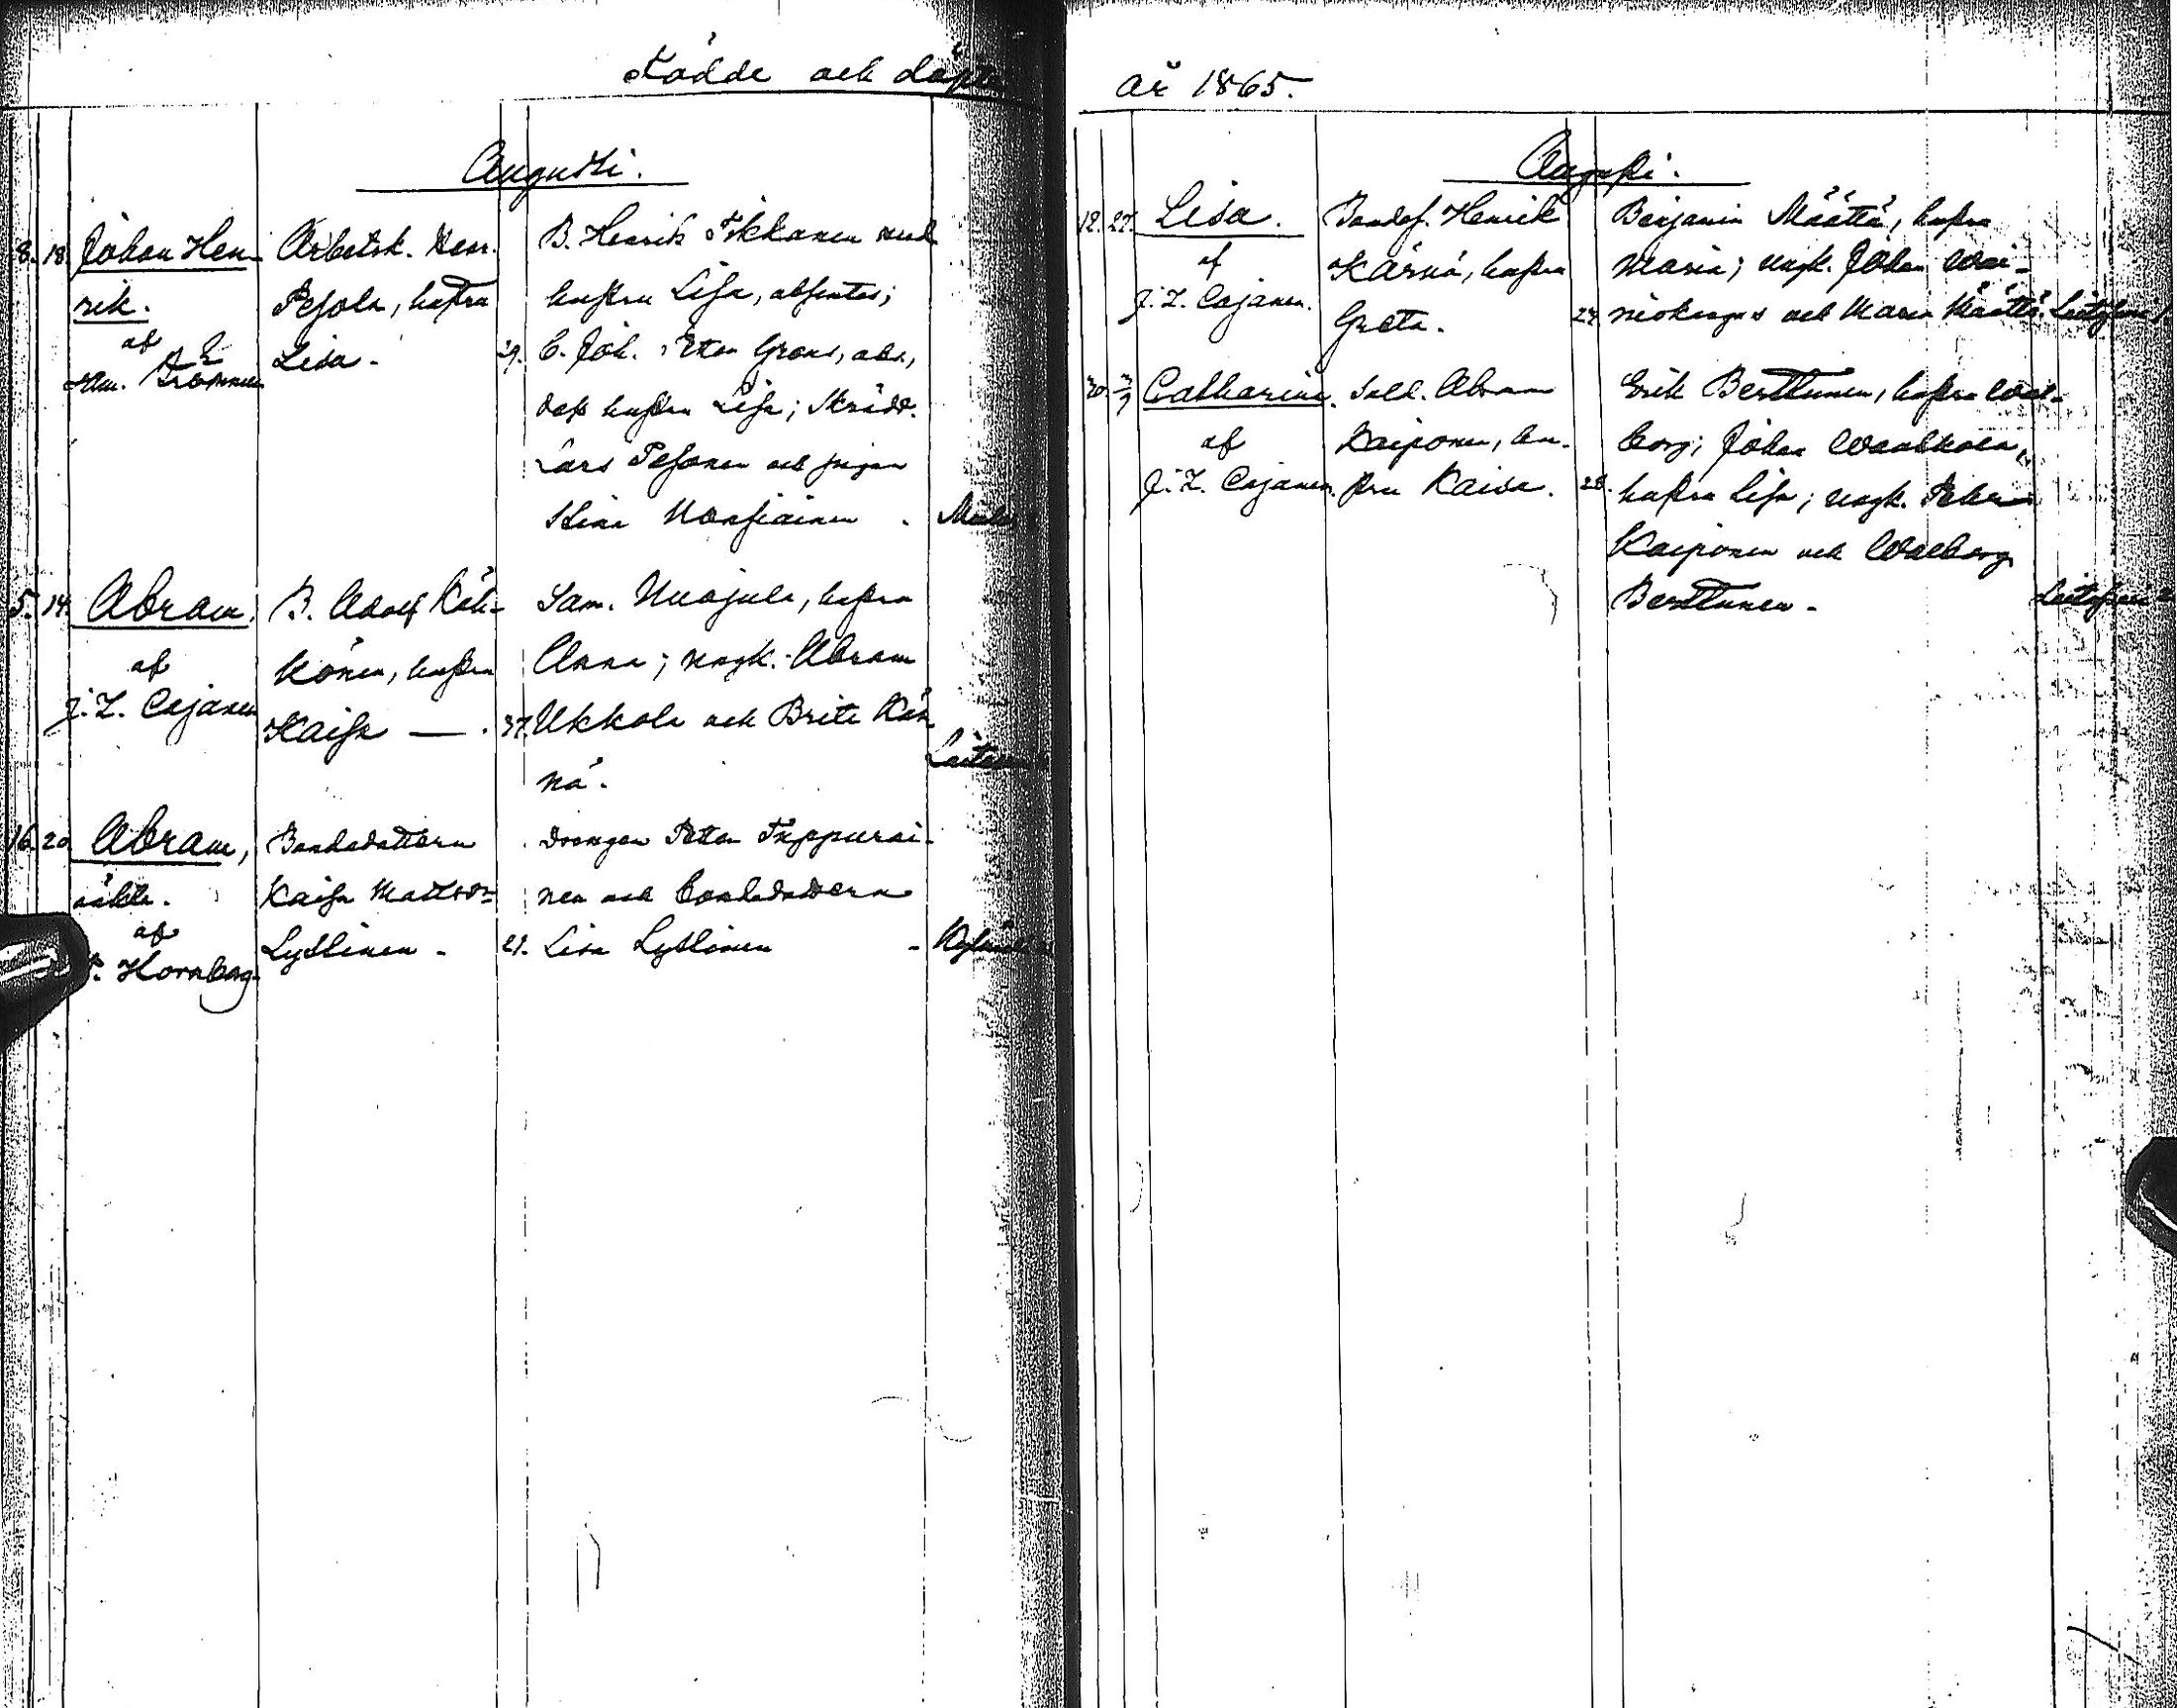 Födde och döpte
år 1865.
Augusti.
8. 18. Johan Hen-
rik.
af
Arbetsk. Henr.
Pesola, hustru
Lisa.
29.
B. Henrik Tikkanen med
hustru Lisa, absentes;
B. Joh. Petter Gröns, abs,
dess hustru Lisa; Skrädd.
Lars Pesonen och pigan
Stina
5. 14. Abram.
af
J. Z. Cajanen
B. Adolf Käk-
könen, hustru
Kaisa — . 37.
Sam. Nuojula, hustru
Anna; ungk. Abram
Ukkola och Brita Kär-
nä.
16. 20. Abram,
oäkta.
af
P. Hornborg.
Bondedottern
Kaisa Matsdr
Lyttinen - 21.
Drängen Petter Tuppurai-
nen och bondedottern
Lisa Lyttinen -
Augusti.
12. 27. Lisa.
af
J. Z. Cajanen.
Bondes. Henrik
Kärnä, hustru
Greta. 24.
Benjamin Määttä, hustru
Maria; ungk. Johan Wai-
niokangas och Maria Määttä.
30. 3/9 Catharina.
af
J. Z. Cajanen.
Sold. Abram
Kaiponen, hu-
stru Kaisa. 28.
Erik Berttunen, hustru Wal-
borg; Johan
hustru Lisa; ungk. Petter
Kaiponen och Walborg
Berttunen -